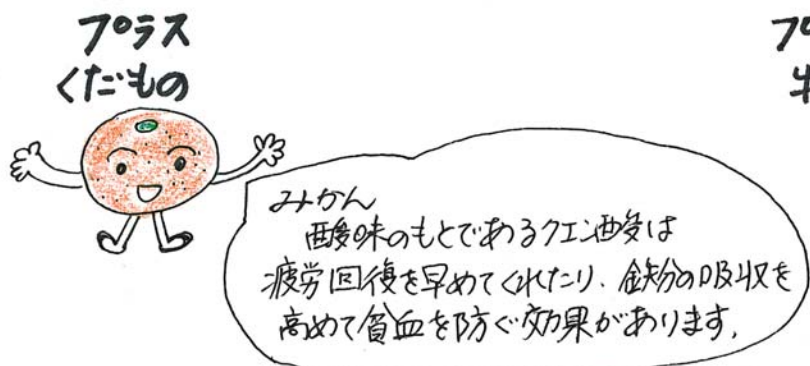 プラス
くだもの
みかん
酸味のもとであるクエン酸は
疲労回復を早めてくれたり、鉄分の吸収を
高めて貧血を防ぐ効果があります。
プ